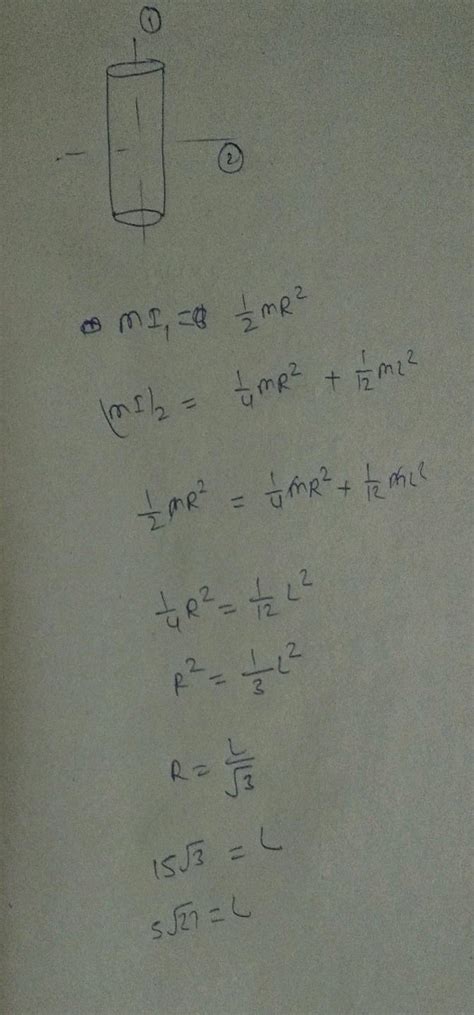 ①
②
mI₁ = ½mR²
(mI)₂ = ¼mR² + 1/12 mL²
½mR² = ¼mR² + 1/12 mL²
¼R² = 1/12 L²
R² = ⅓L²
R = L/√3
15√3 = L
5√27 = L